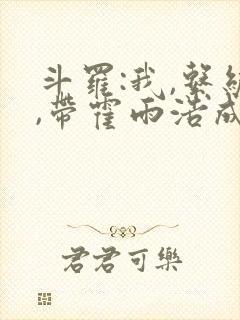 斗羅:我,繫
,帶霍雨浩成
君君可樂